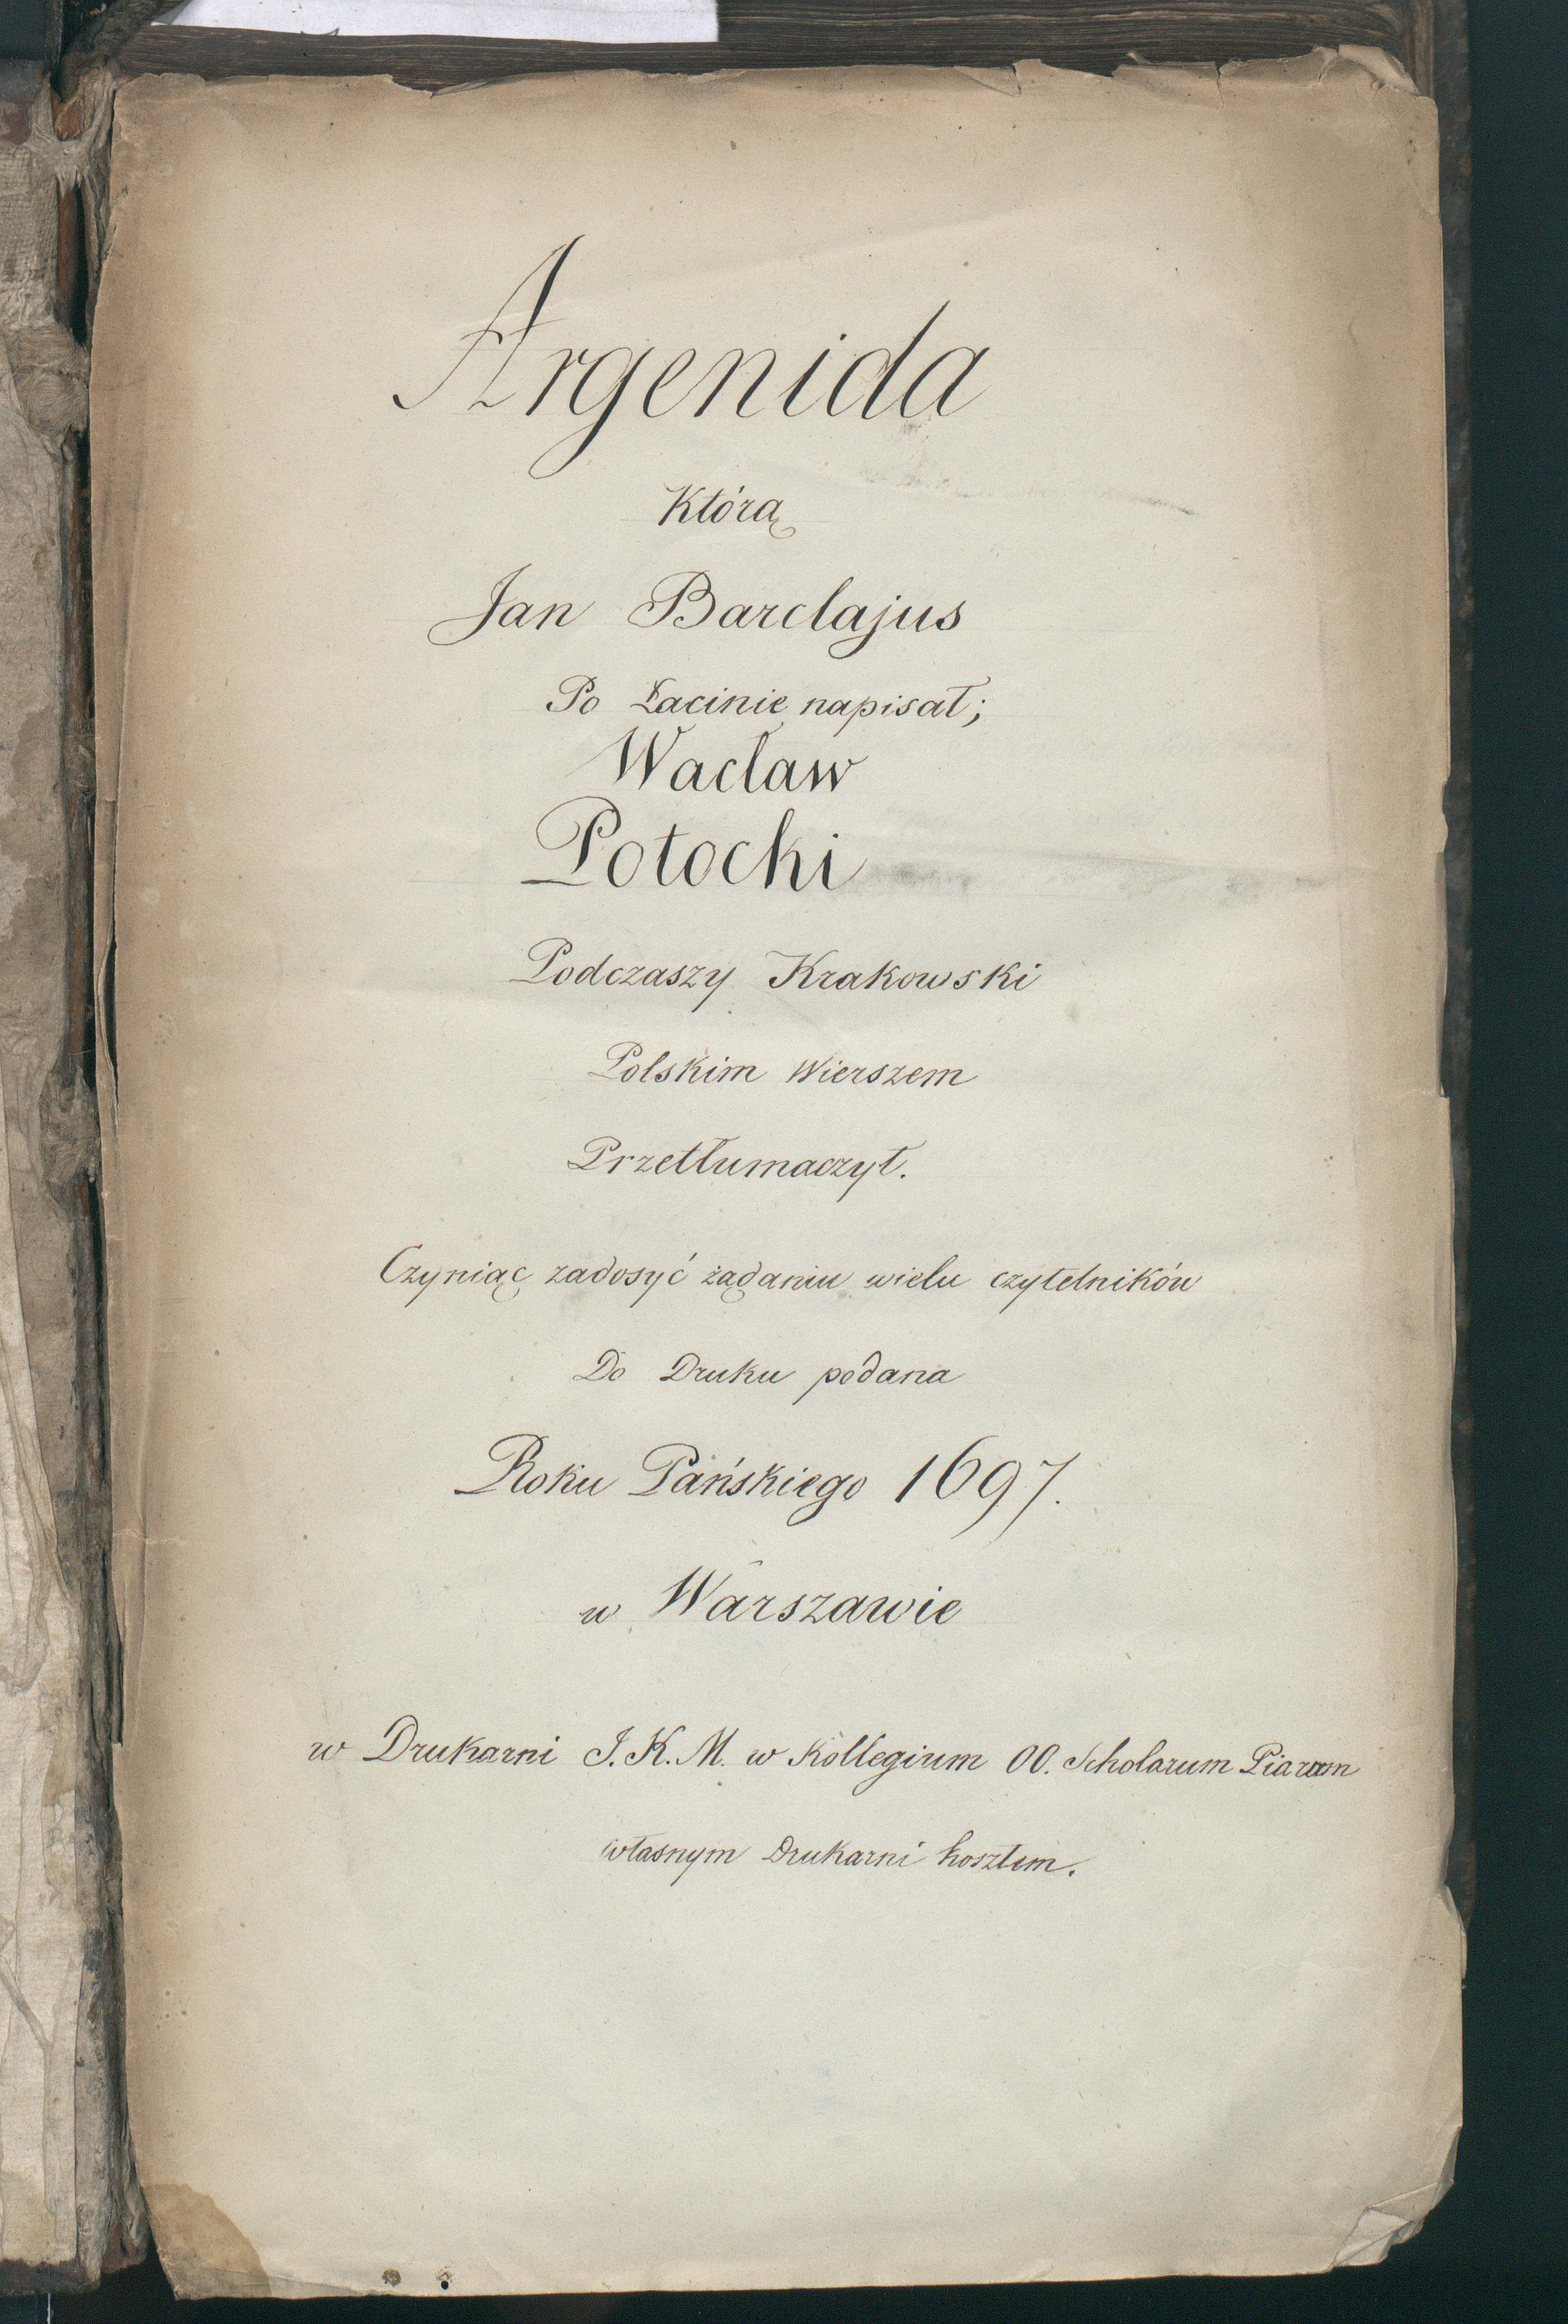 Argenida
Którą
Jan Barclajus
Po Łacinie napisał;
Wacław
Potocki
Podczaszy Krakowski
Polskim Wierszem
Przetłumaczył.
Czyniąc zadosyć żądaniu wielu czytelników
Do Druku podana
Roku Pańskiego 1697.
w Warszawie
w Drukarni J. K. M. w Kollegium OO. Scholarum Piarum
własnym Drukarni kosztem.